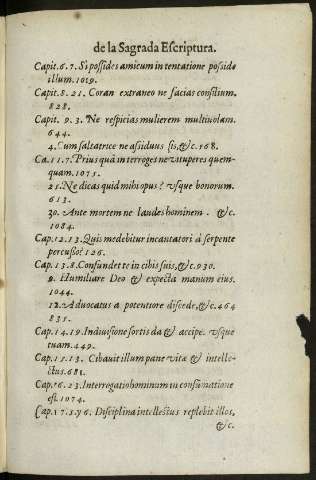 de la Sagrada Escriptura.
Capit. 6.7. Si possides amicum in tentatione posside
illum. 1019.
Capit. 8. 21. Coran extraneo ne facias consilium.
828.
Capit. 9. 3. Ne respicias mulierem multivolam.
644.
4. Cum saltatrice ne assiduus sis, &c. 168.
Ca. 11.7. Prius quã interroges ne vituperes quem-
quam. 1071.
21. Ne dicas quid mihi opus? vsque bonorum.
613.
30. Ante mortem ne laudes hominem. &c.
1084.
Cap. 12. 13. Quis medebitur incantatori à serpente
percusso? 126.
Cap. 13. 8. Confundet te in cibis suis, &c. 930.
9. Humiliare Deo & expecta manum eius.
1044.
12. Advocatus a potentiore discede, &c. 464
831.
Cap. 14. 19. In divisione sortis da & accipe. vsque
tuam. 449.
Cap. 15. 13. Cibauit illum pane vitæ & intelle-
ctus. 681.
Cap. 16. 23. Interrogatio hominum in consũmatione
est. 1074.
Cap. 17. 5. y 6. Disciplina intellectus replebit illos,
&c.